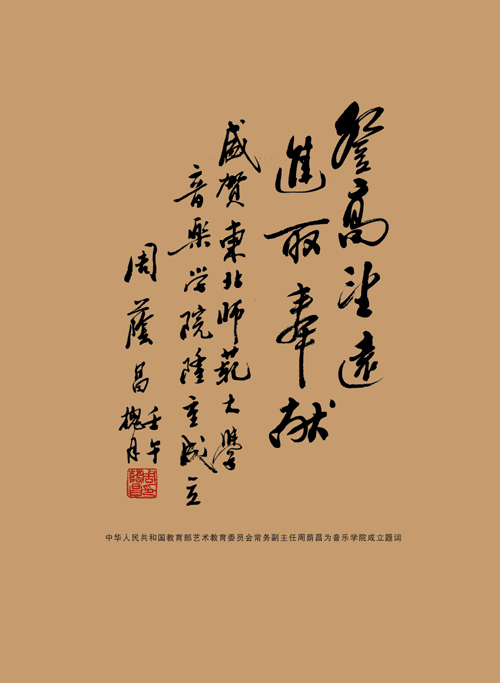 登高望遠
進取奉献
盛賀東北师範大學
音樂学院隆重成立
周蔭昌
壬午
槐月
中华人民共和国教育部艺术教育委员会常务副主任周荫昌为音乐学院成立题词